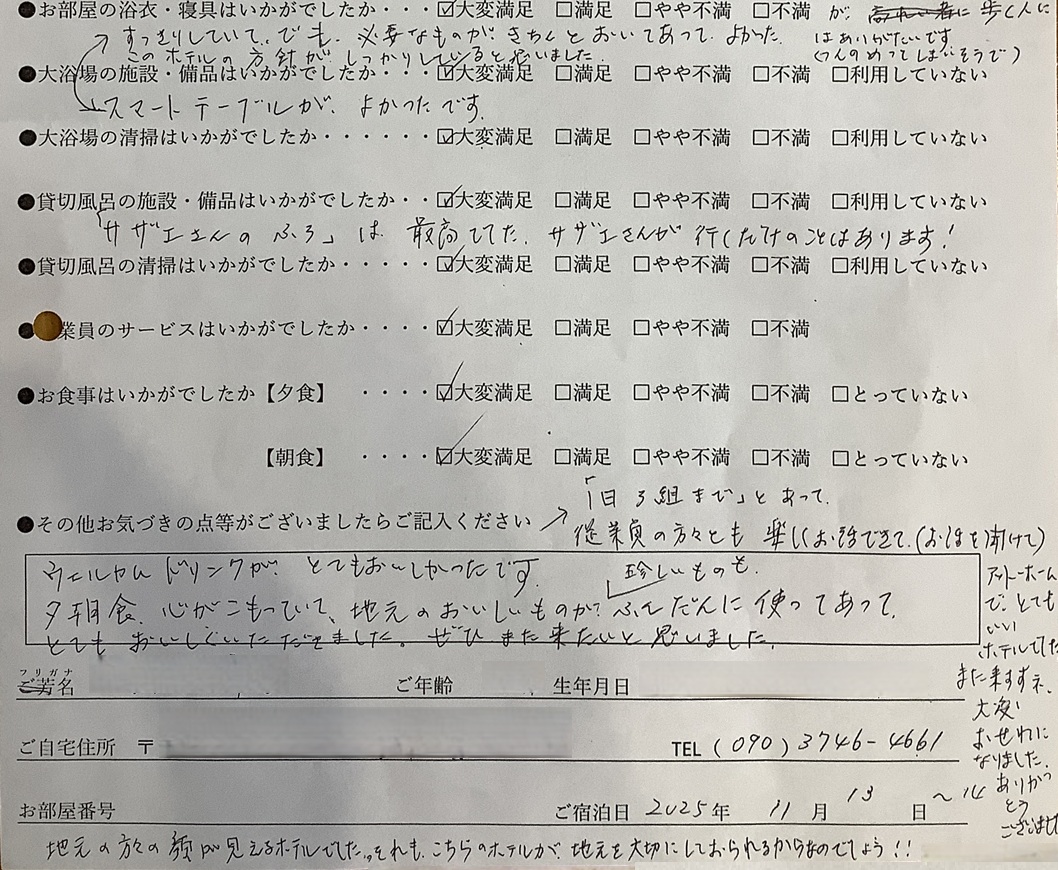 ●お部屋の浴衣・寝具はいかがでしたか・・・☑大変満足 □満足 □やや不満 □不満 が、高れい者に歩く人に
はありがたいです
(つんのめってしまいそうで)
すっきりしていて、でも、必要なものがきちんとおいてあって、よかった。
このホテルの方針がしっかりしていると思いました。
●大浴場の施設・備品はいかがでしたか・・・☑大変満足 □満足 □やや不満 □不満 □利用していない
スマートテーブルが、よかったです。
●大浴場の清掃はいかがでしたか・・・・・・☑大変満足 □満足 □やや不満 □不満 □利用していない
●貸切風呂の施設・備品はいかがでしたか・・☑大変満足 □満足 □やや不満 □不満 □利用していない
「サザエさんのふろ」は最高でした。サザエさんが行くだけのことはあります!
●貸切風呂の清掃はいかがでしたか・・・・・☑大変満足 □満足 □やや不満 □不満 □利用していない
●業員のサービスはいかがでしたか・・・・☑大変満足 □満足 □やや不満 □不満
●お食事はいかがでしたか【夕食】 ・・・・☑大変満足 □満足 □やや不満 □不満 □とっていない
【朝食】 ・・・・☑大変満足 □満足 □やや不満 □不満 □とっていない
●その他お気づきの点等がございましたらご記入ください
「1日3組まで」とあって、
従業員の方々とも楽しくお話できて、(お話を聞けて)
アットホーム
で、とても
いい
ホテルでした
また来ますネ。
大変
おせわに
なりました。
ありがっ
とう
ございました
ウェルカムドリンクが、とてもおいしかったです。
珍しいものも、
夕朝食、心がこもっていて、地元のおいしいものがふんだんに使ってあって、
とてもおいしくいただきました。ぜひまた来たいと思いました。
フリガナ
ご芳名 ご年齢 生年月日
ご自宅住所 〒 TEL (090) 3746-4661
お部屋番号 ご宿泊日 2025年 11月 13日~14
地元の方の顔が見えるホテルでした。それも、こちらのホテルが、地元を大切にしておられるからなのでしょう!!